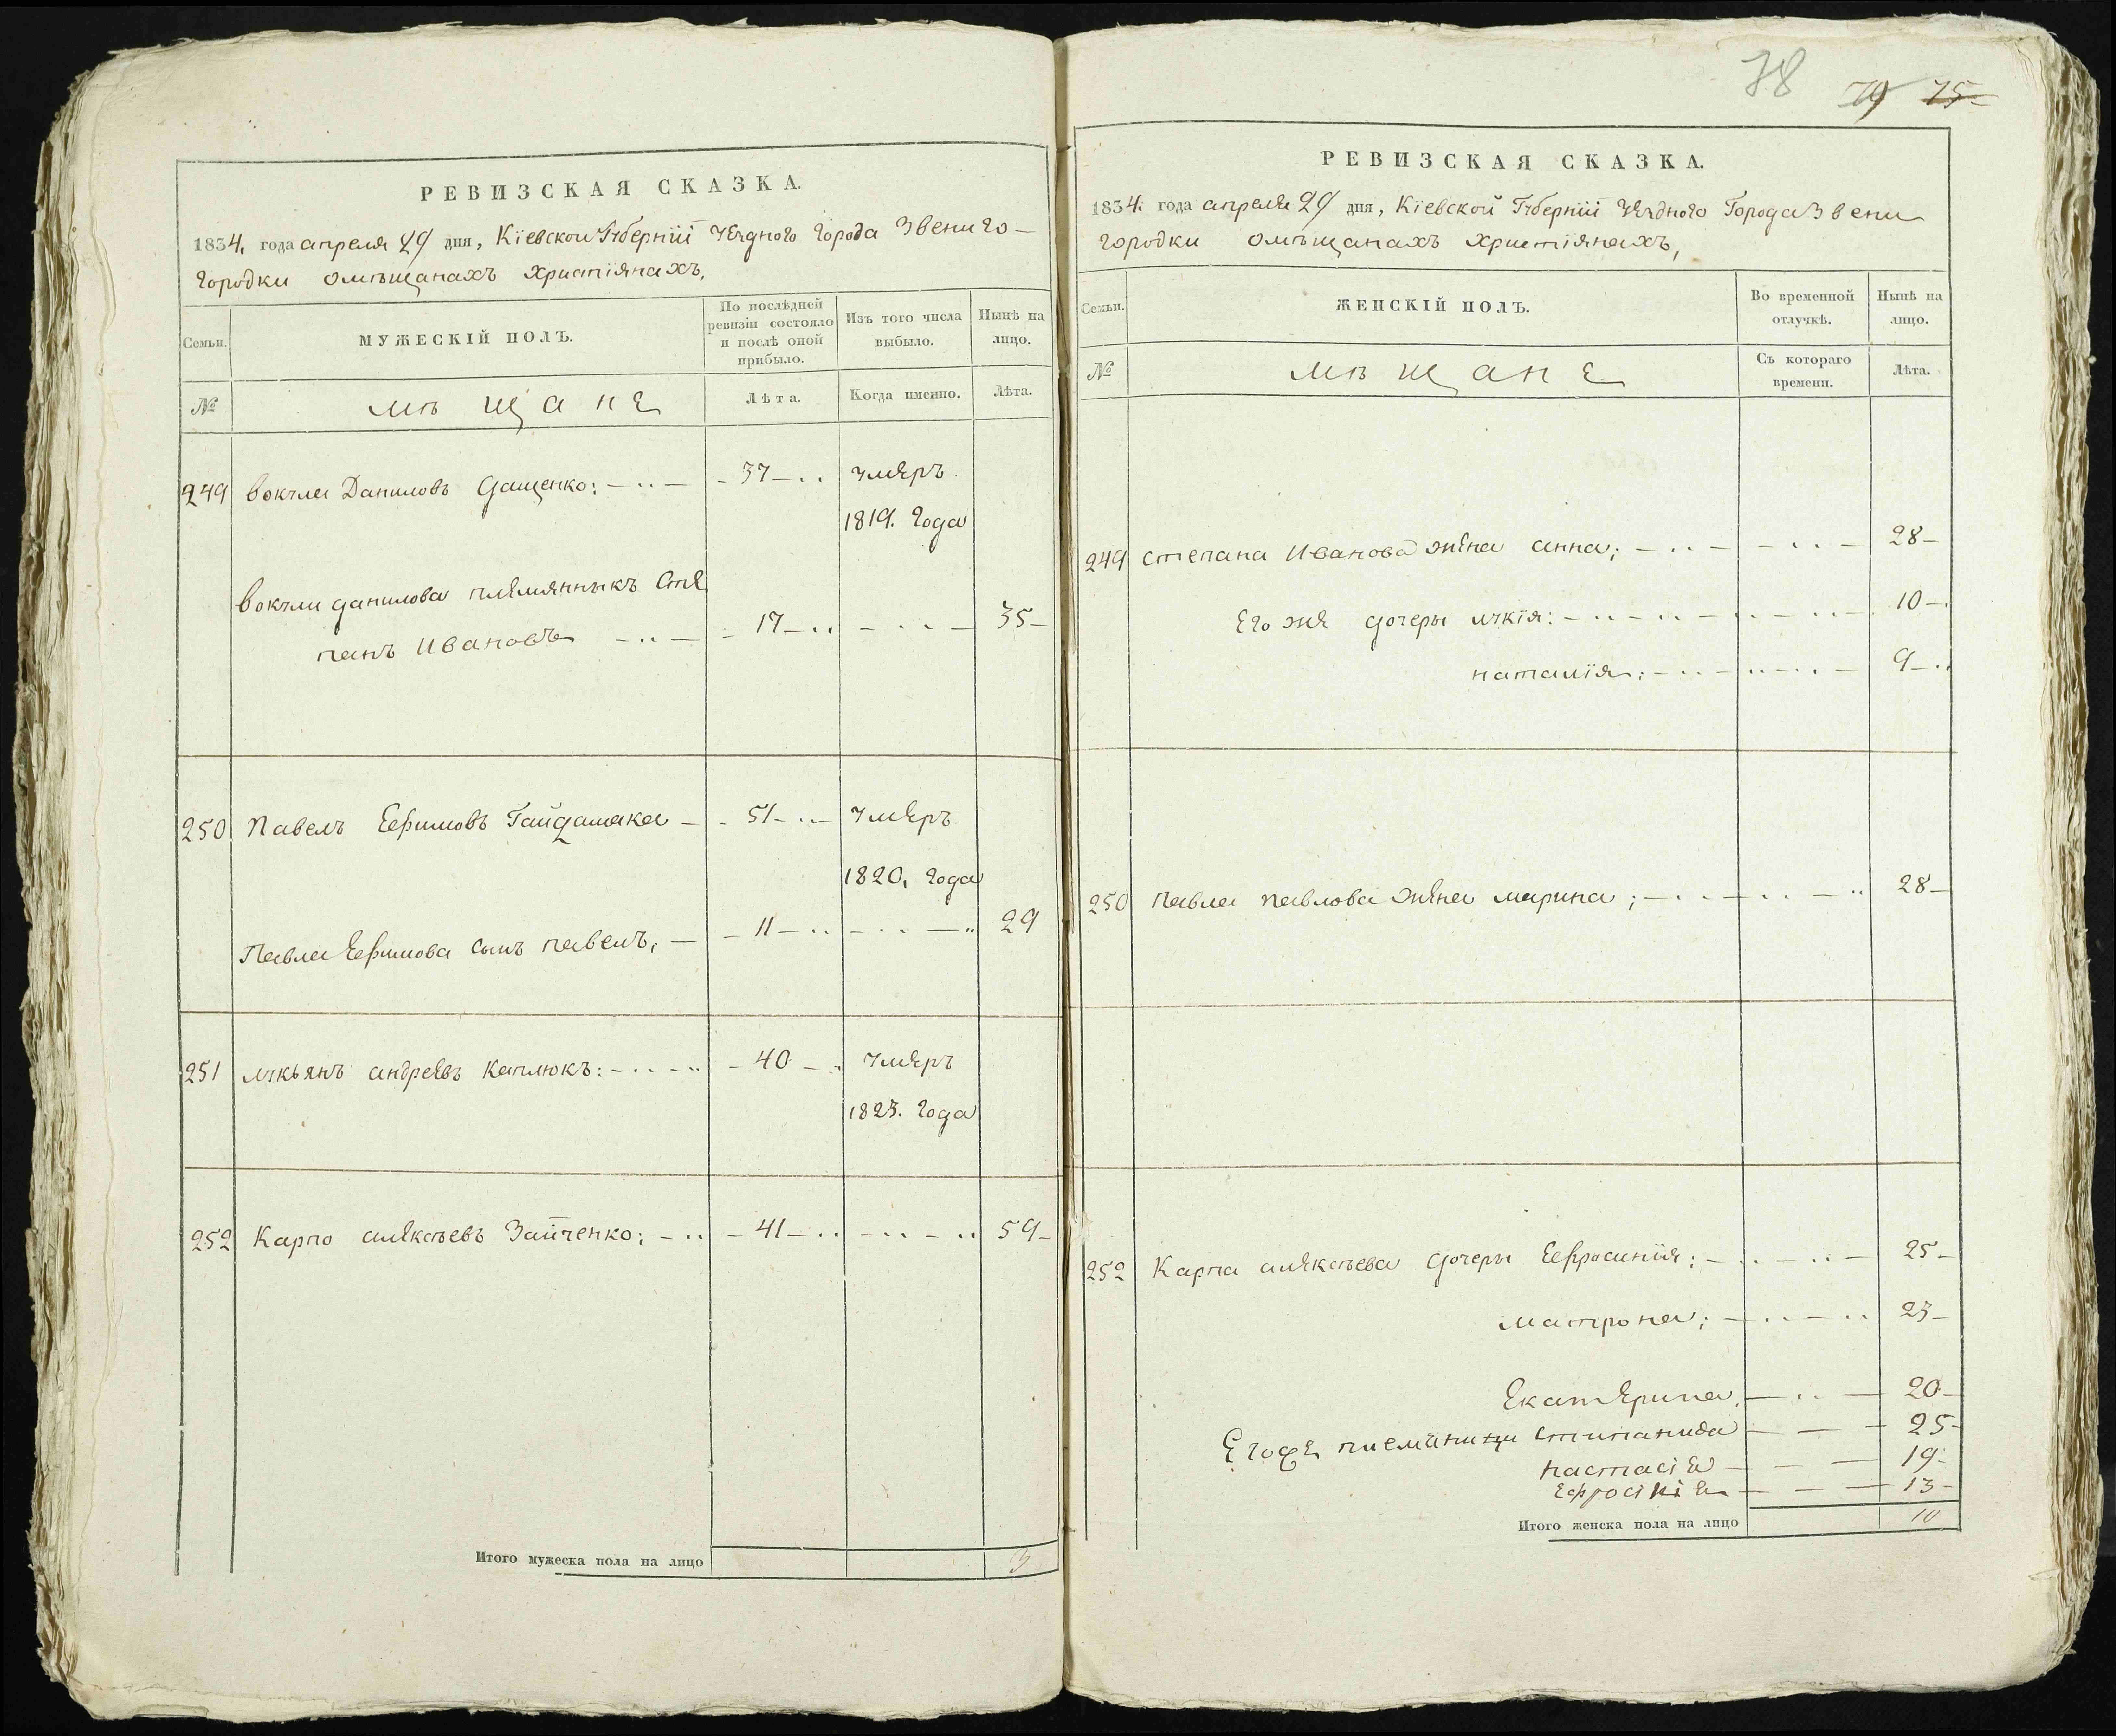 РЕВИЗСКАЯ СКАЗКА.
1834. года апреля 29 дня, Кїевской Гѹбернїи ѹезднаго города Звениго-
городки омѣщанахъ христїянахъ,
Семьи.
МУЖЕСКІЙ ПОЛЪ.
По послѣдней ревизіи состояло и послѣ оной прибыло.
Изъ того числа выбыло.
Нынѣ на лицо.
№
мѣщане
Лѣта.
Когда именно.
Лѣта.
249 Даниловъ Дащенко: 37 ѹмеръ
1819. года
данилова племянныкъ Сте
панъ Ивановъ 17 35
250 Павелъ Ефимовъ Гайдамака 51 ѹмеръ
1820. года
Павла Ефимова сынъ павелъ, 11 29
251 лѹкьянъ андреевъ Каплюкъ: 40 ѹмеръ
1823. года
252 Карпо алексѣевъ Зайченко; 41 59
Итого мужеска пола на лицо 3
78 79 75
РЕВИЗСКАЯ СКАЗКА.
1834. года апреля 29 дня, Кїевской Гѹбернїи ѹезднаго Города Звени
городки омѣщанахъ христїянахъ,
Семьи.
ЖЕНСКІЙ ПОЛЪ.
Во временной отлучкѣ.
Нынѣ на лицо.
№
мѣщане
Съ котораго времени.
Лѣта.
249 степана Иванова жена анна; 28
Его же дочеры лѹкїя: 10
наталїя; 9
250 павла павлова жена марина; 28
252 Карпа алексѣева дочеры Ефросинїя; 25
матрона; 23
Екатерина 20
Егоже племиници степанида 25
настасія 19
Ефросінія 13
Итого женска пола на лицо 10